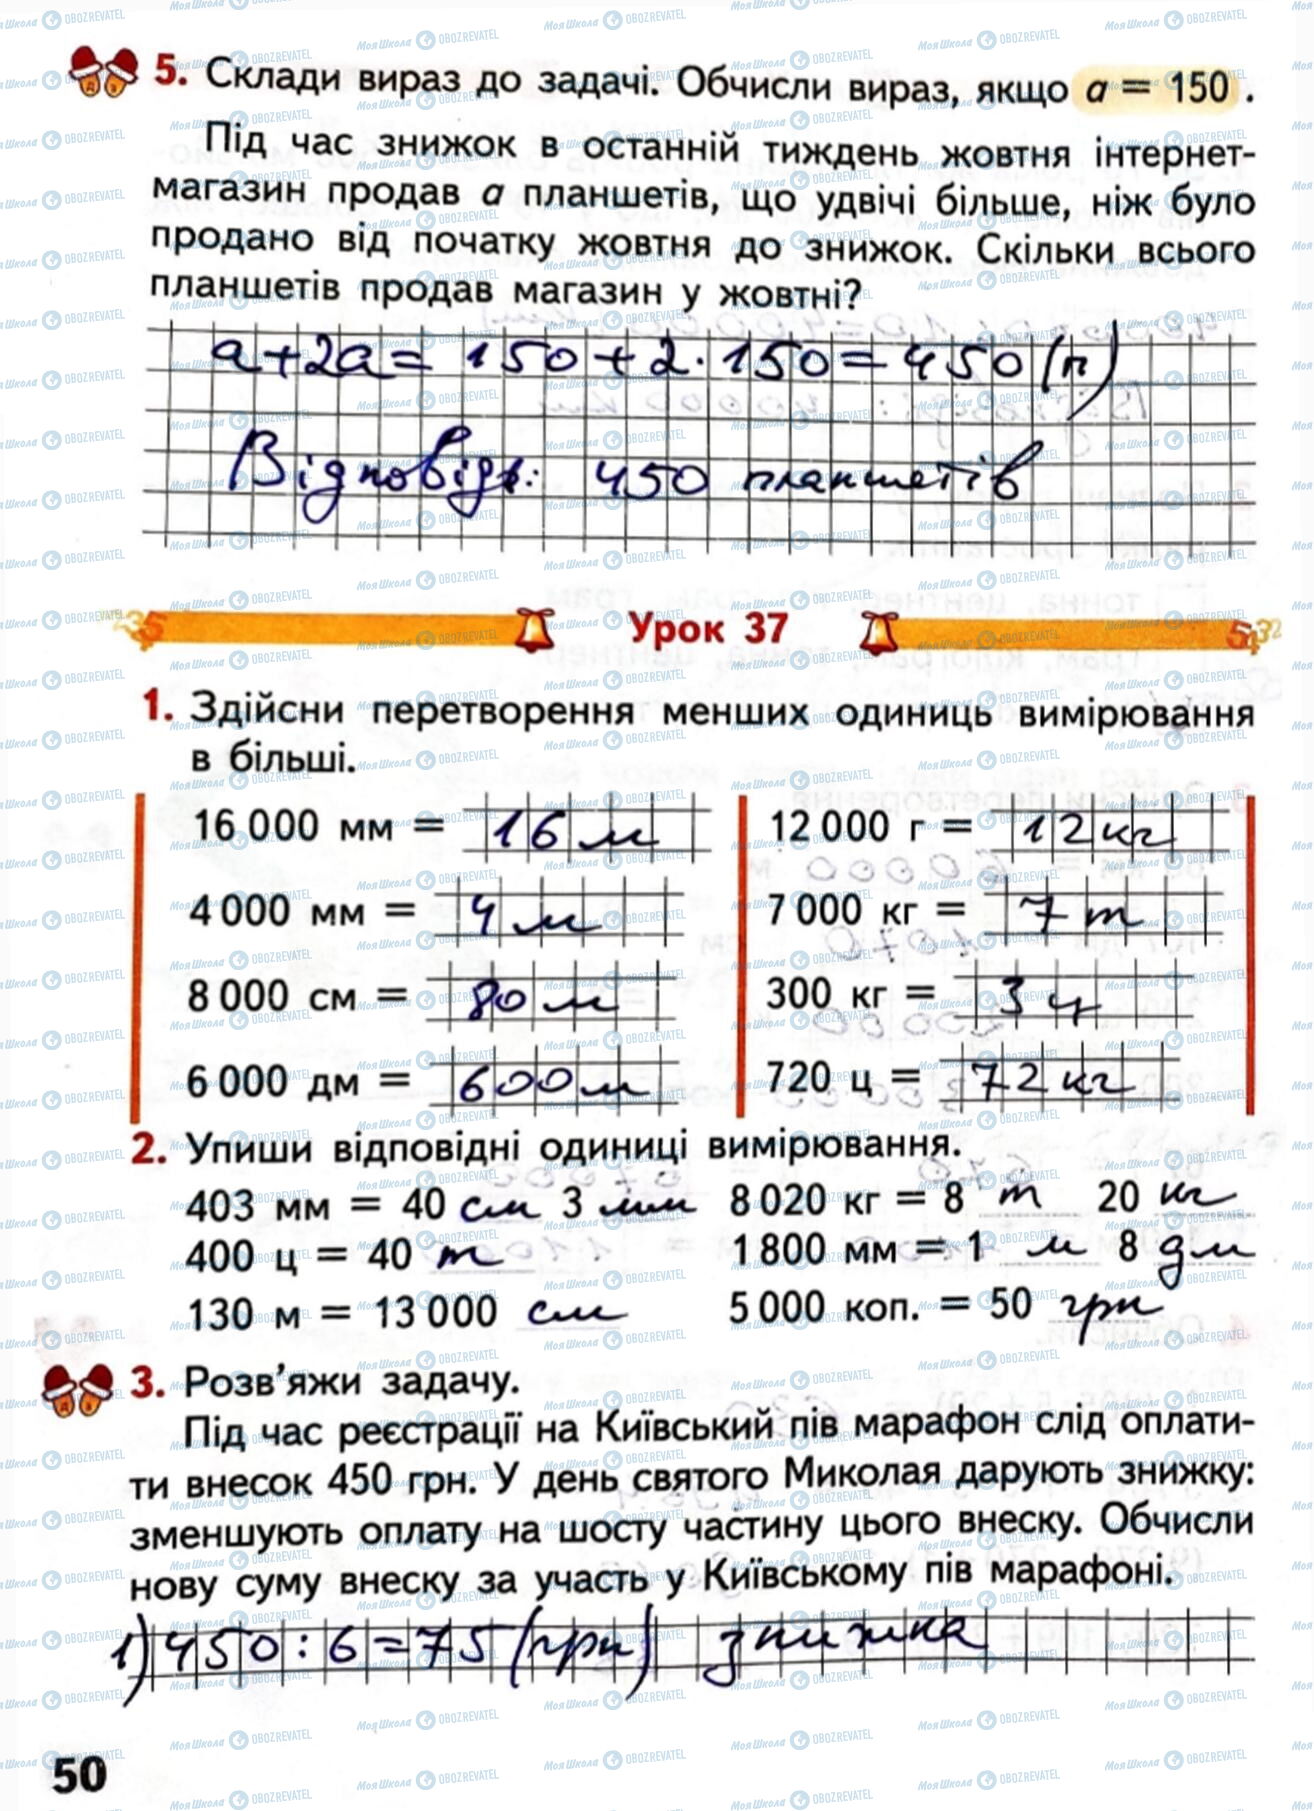 5. Склади вираз до задачі. Обчисли вираз, якщо a = 150 .
Під час знижок в останній тиждень жовтня інтернет-
магазин продав а планшетів, що удвічі більше, ніж було
продано від початку жовтня до знижок. Скільки всього
планшетів продав магазин у жовтні?
a+2a= 150+2·150=450(п)
Відповідь: 450 планшетів
Урок 37
1. Здійсни перетворення менших одиниць вимірювання
в більші.
16 000 мм = 16 м
12 000 г = 12 кг
4 000 мм = 4 м
7 000 кг = 7 т
8 000 см = 80 м
300 кг = 3 ц
6 000 дм = 600 м
720 ц = 72 кг
2. Упиши відповідні одиниці вимірювання.
403 мм = 40 см 3 мм 8 020 кг = 8 т 20 кг
400 ц = 40 т 1 800 мм = 1 м 8 дм
130 м = 13 000 см 5 000 коп. = 50 грн
3. Розв'яжи задачу.
Під час реєстрації на Київський пів марафон слід оплати-
ти внесок 450 грн. У день святого Миколая дарують знижку:
зменшують оплату на шосту частину цього внеску. Обчисли
нову суму внеску за участь у Київському пів марафоні.
1) 450:6=75(грн) знижка
50
МояШкола OBOZREVATEL